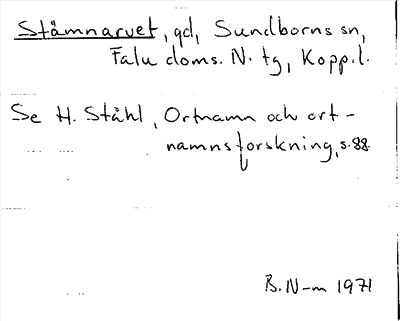 Stämnarvet, gd, Sundborns sn,
Falu doms. N. tg, Kopp.l.
Se H. Ståhl, Ortnamn och ort-
namnsforskning, s. 88.
B. N-m 1971